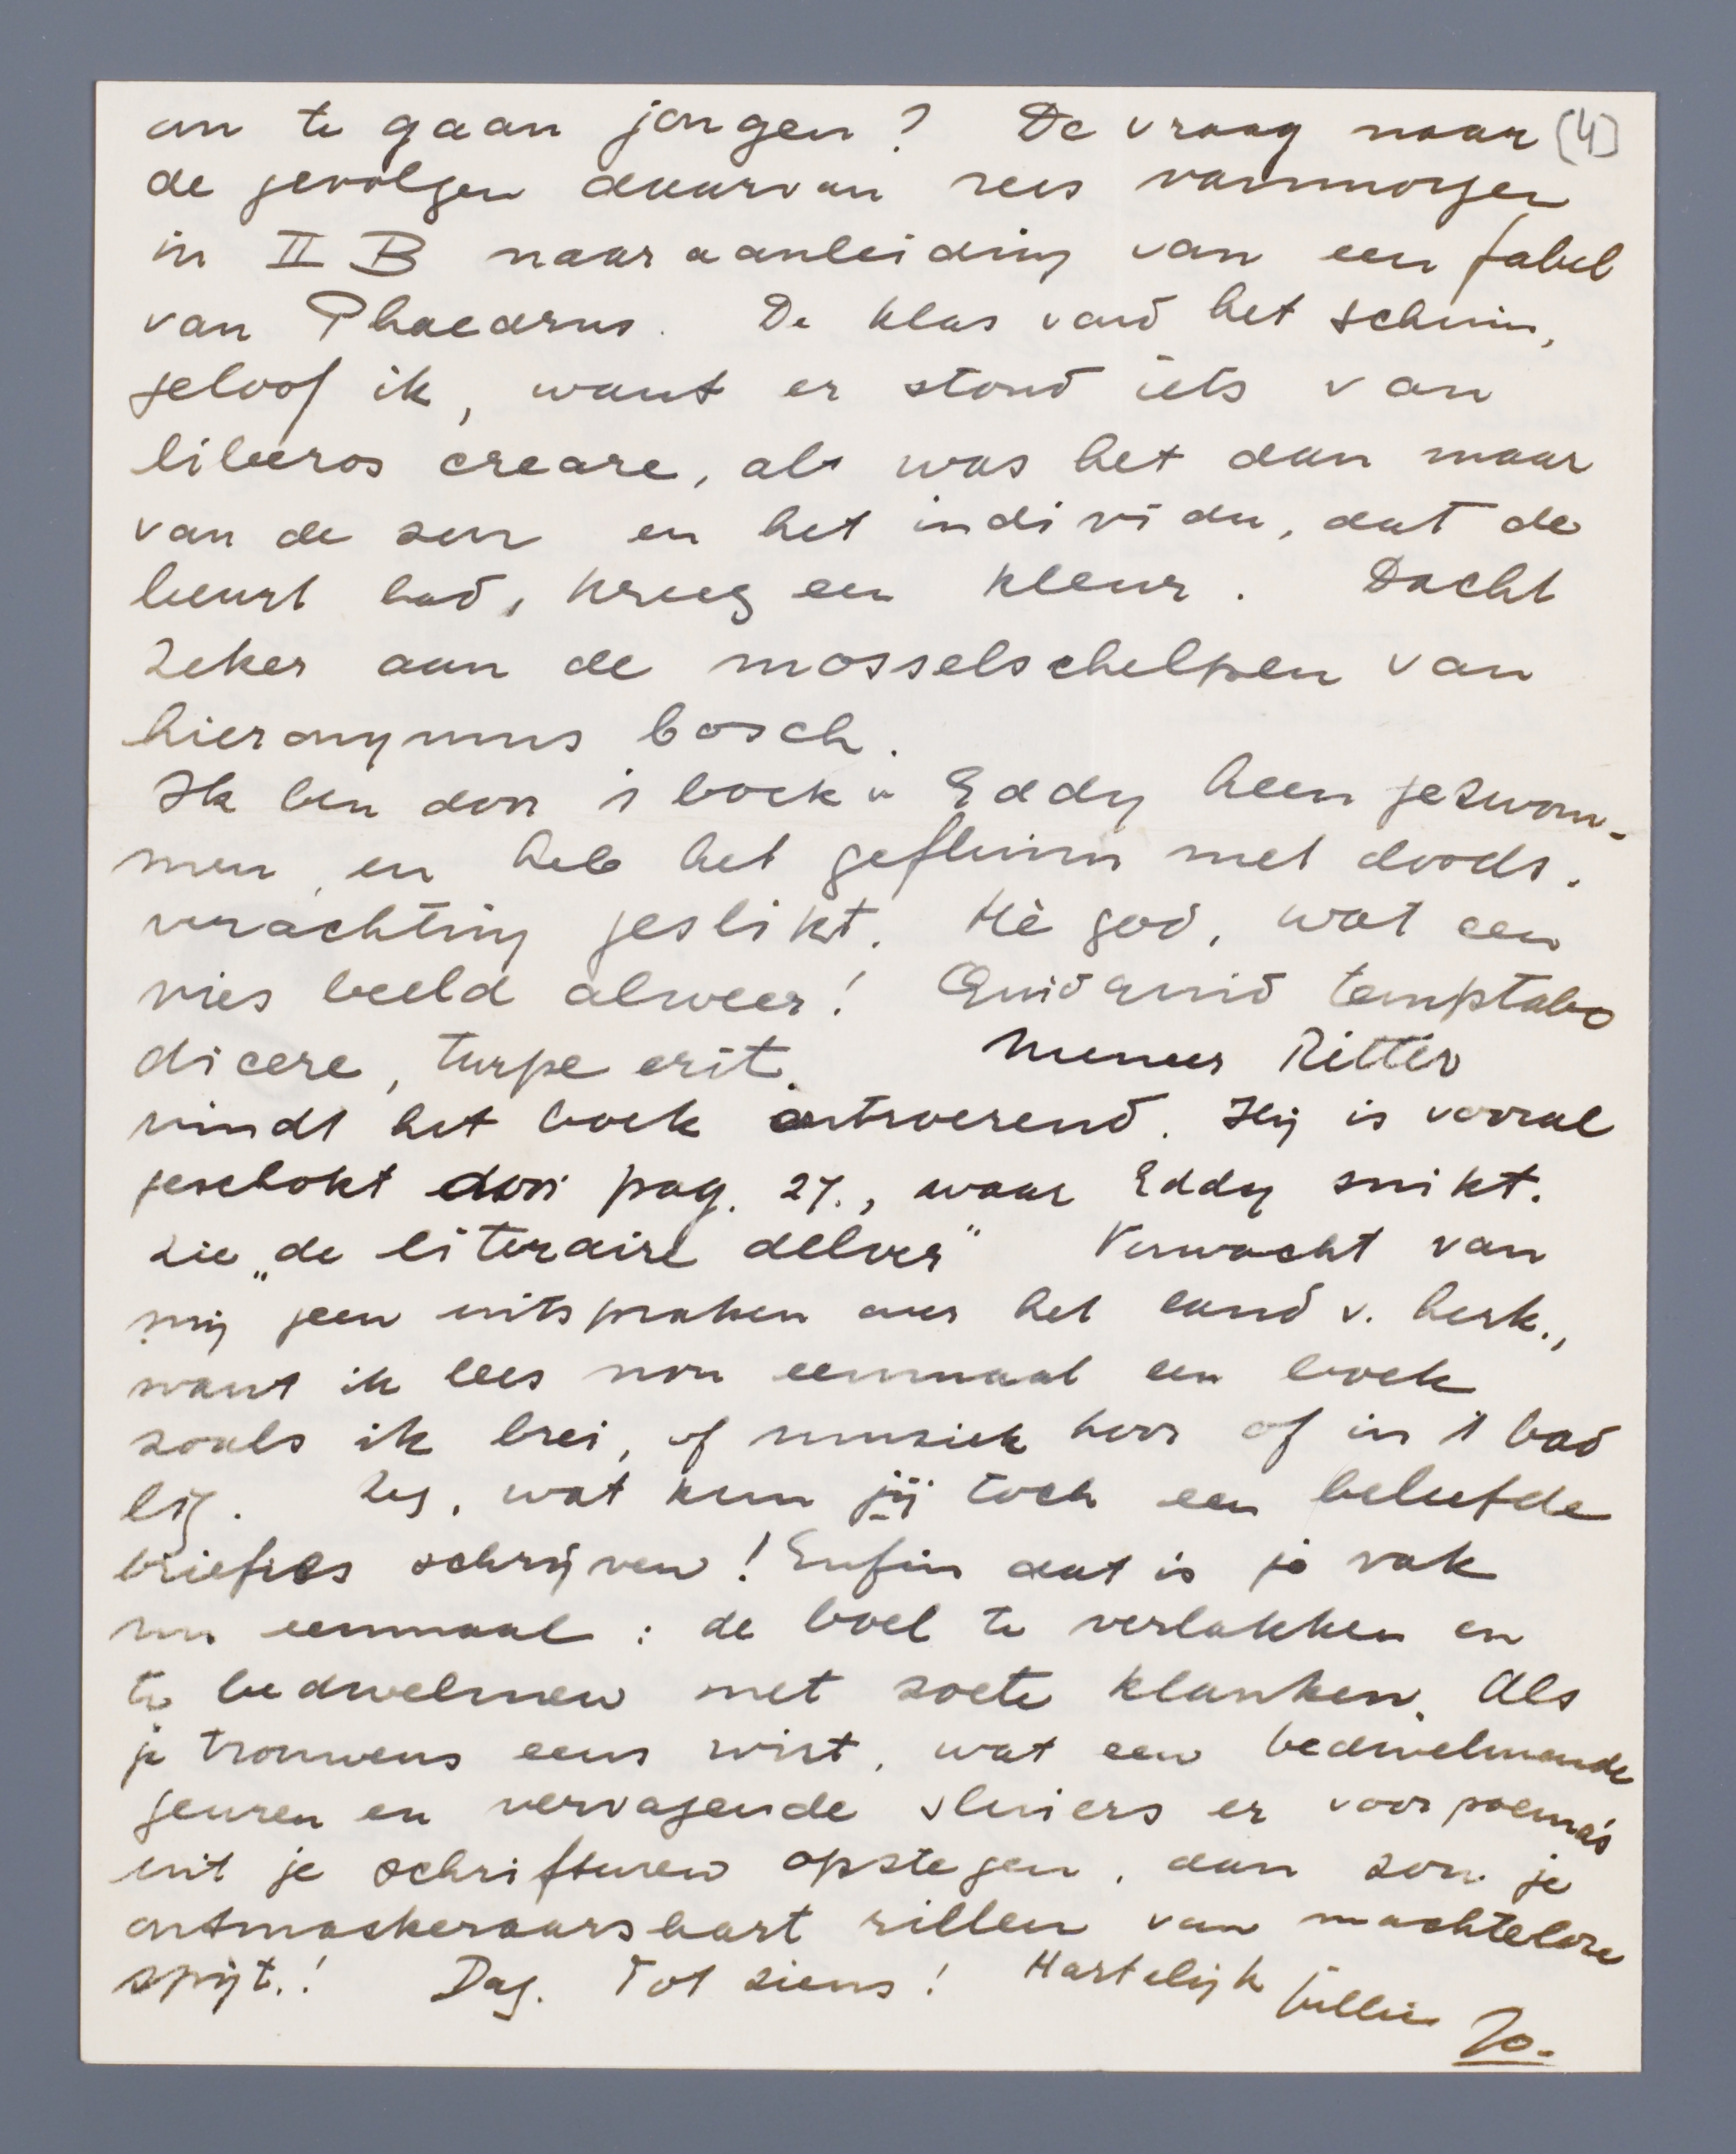 om te gaan jongen? De vraag naar [4]
de gevolgen daarvan rees vanmorgen
in II B naar aanleiding van een fabel
van Phaedrus. De klas vond het schuin,
geloof ik, want er stond iets van
liberos creare, al was het dan maar
van de zon en het individu, dat de
beurt had, kreeg een kleur. Dacht
zeker aan de mosselschelpen van
hieronymus bosch.
Ik ben door 't boek v Eddy heen gezwom-
men, en heb het gefluim met doods-
verachting geslikt. Hè god, wat een
vies beeld alweer! Quidquid temptabo
dicere, turpe erit. Meneer Ritter
vindt het boek ontroerend. Hij is vooral
geschokt door pag. 27., waar Eddy snikt.
Zie „de literaire delver" Verwacht van
mij geen uitspraken over het land v. herk.,
want ik lees nou eenmaal een boek
zoals ik brei, of muziek hoor of in 't bad
lig. Zeg, wat kun jij toch een beleefde
briefjes schrijven! Enfin dat is je vak
nu eenmaal: de boel te verlakken en
te bedwelmen met zoete klanken. Als
je trouwens eens wist, wat een bedwelmende
geuren en vervagende sluiers er voor poema's
uit je schrifturen opstegen, dan zou je
ontmaskeraarshart rillen van machteloze
spijt.! Dag. Tot ziens! Hartelijk jullie
Jo.